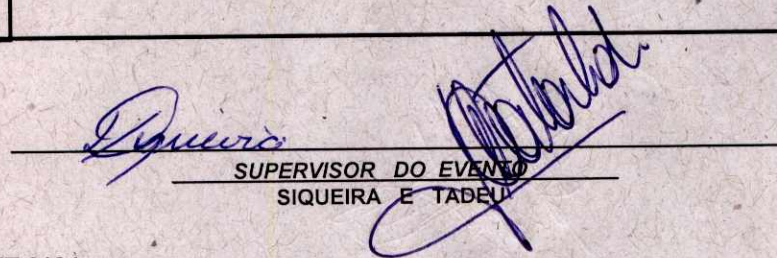 Siqueira
SUPERVISOR DO EVENTO
SIQUEIRA E TADEU